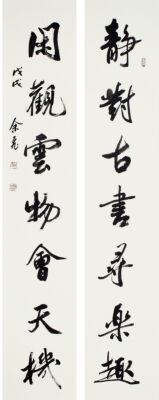 靜對古書尋樂趣
閑觀雲物會天機
戊戌 余亮